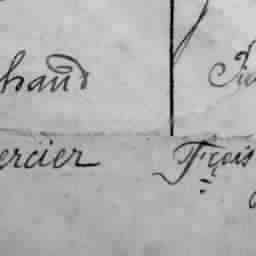 haud
ercier Fçois